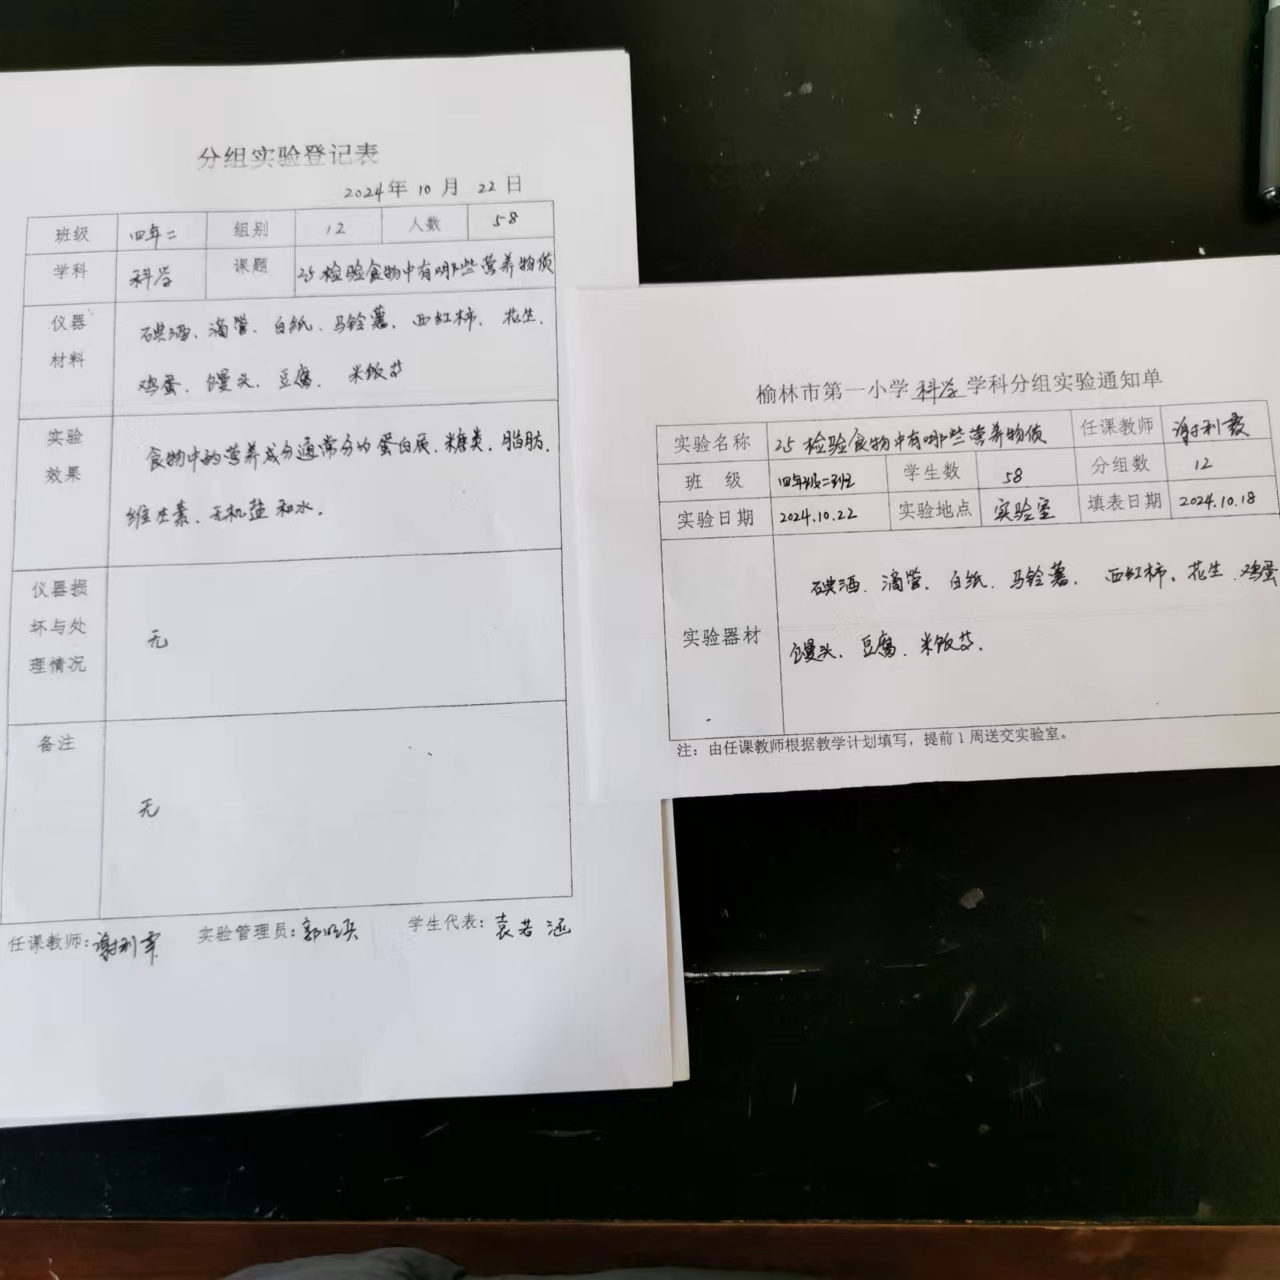 分组实验登记表
2024年 10 月 22 日
班级 四年二 组别 12 人数 58
学科 科学 课题 25 检验食物中有哪些营养物质
仪器材料 碘酒、滴管、白纸、马铃薯、西红柿、花生、
鸡蛋、馒头、豆腐、米饭等
实验效果 食物中的营养成分通常分为蛋白质、糖类、脂肪、
维生素、无机盐和水。
仪器损坏与处理情况 无
备注 无
任课教师: 实验管理员: 学生代表:袁若涵
榆林市第一小学 科学 学科分组实验通知单
实验名称 25 检验食物中有哪些营养物质 任课教师
班 级 四年级二班 学生数 58 分组数 12
实验日期 2024.10.22 实验地点 实验室 填表日期 2024.10.18
实验器材 碘酒、滴管、白纸、马铃薯、西红柿、花生、鸡蛋
馒头、豆腐、米饭等。
注:由任课教师根据教学计划填写,提前1周送交实验室。